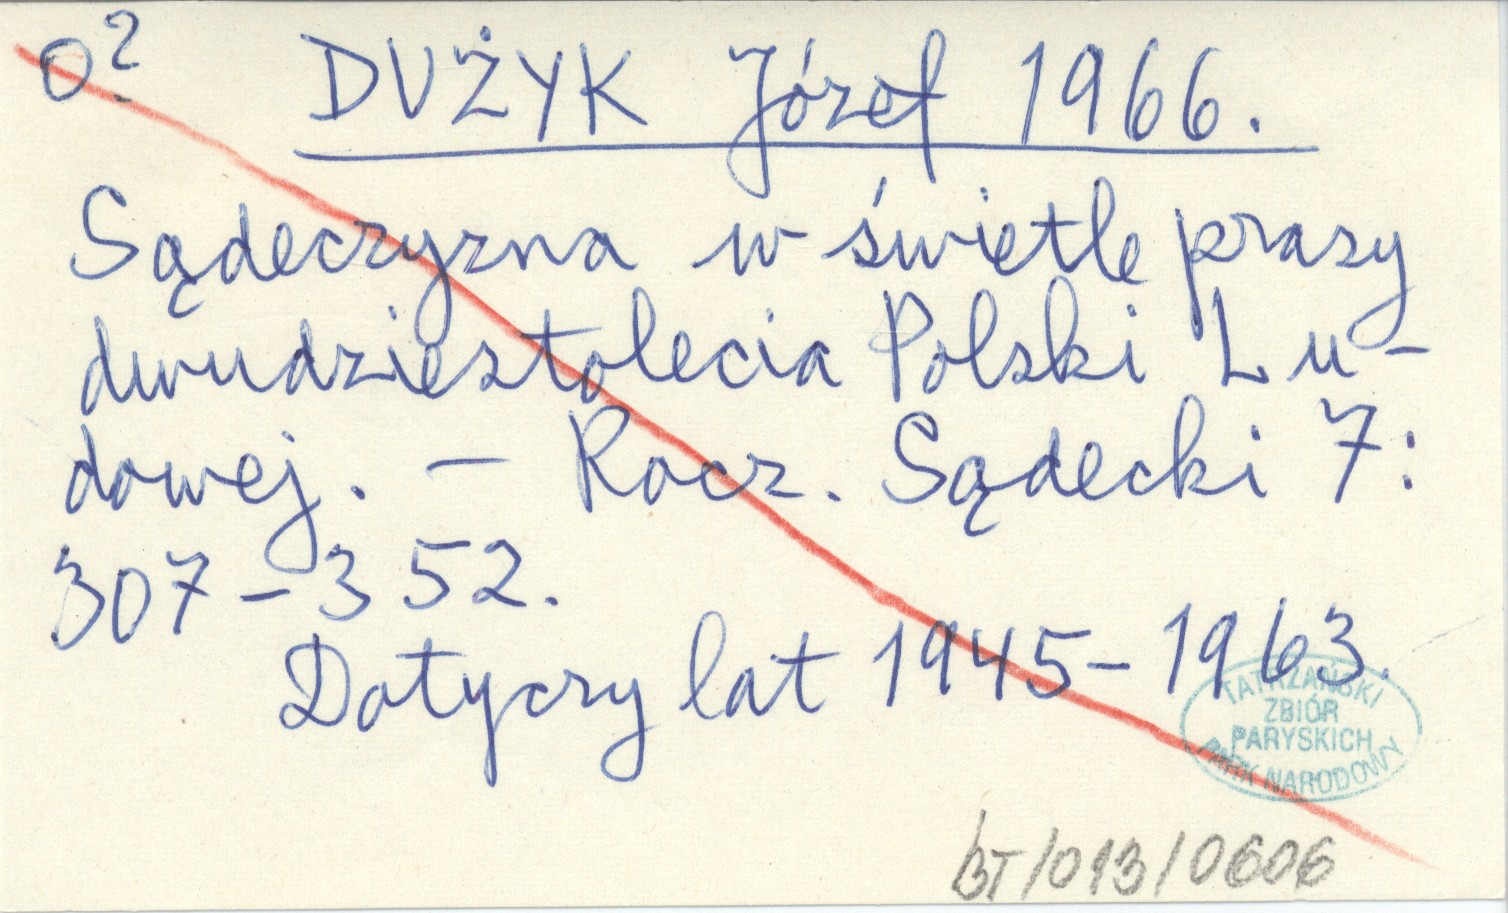 O?
DUŻYK Józef 1966.
Sądeczyzna w świetle prasy
dwudziestolecia Polski Lu-
dowej. – Rocz. Sądecki 7:
307–352.
Dotyczy lat 1945–1963.
TATRZAŃSKI
ZBIÓR
PARYSKICH
PARK NARODOWY
BT/013/0606